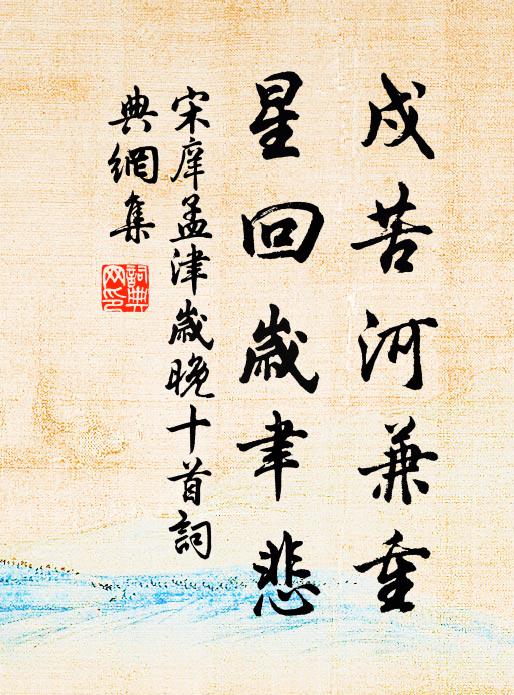 戍苦河兼重
星回歲聿悲
宋庠孟津歲晚十首詞
典網集
詞典
网印